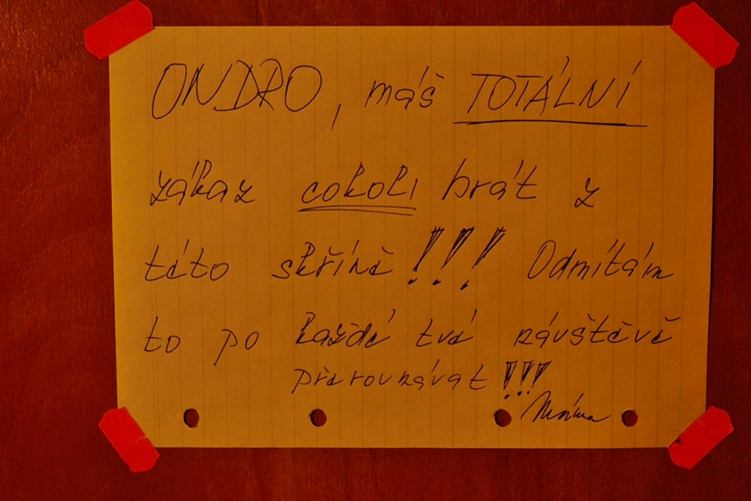 ONDRO, máš TOTÁLNÍ
zákaz cokoli brát z
této skříně!!! Odmítám
to po každé tvé návštěvě
přerovnávat!!!
Máma